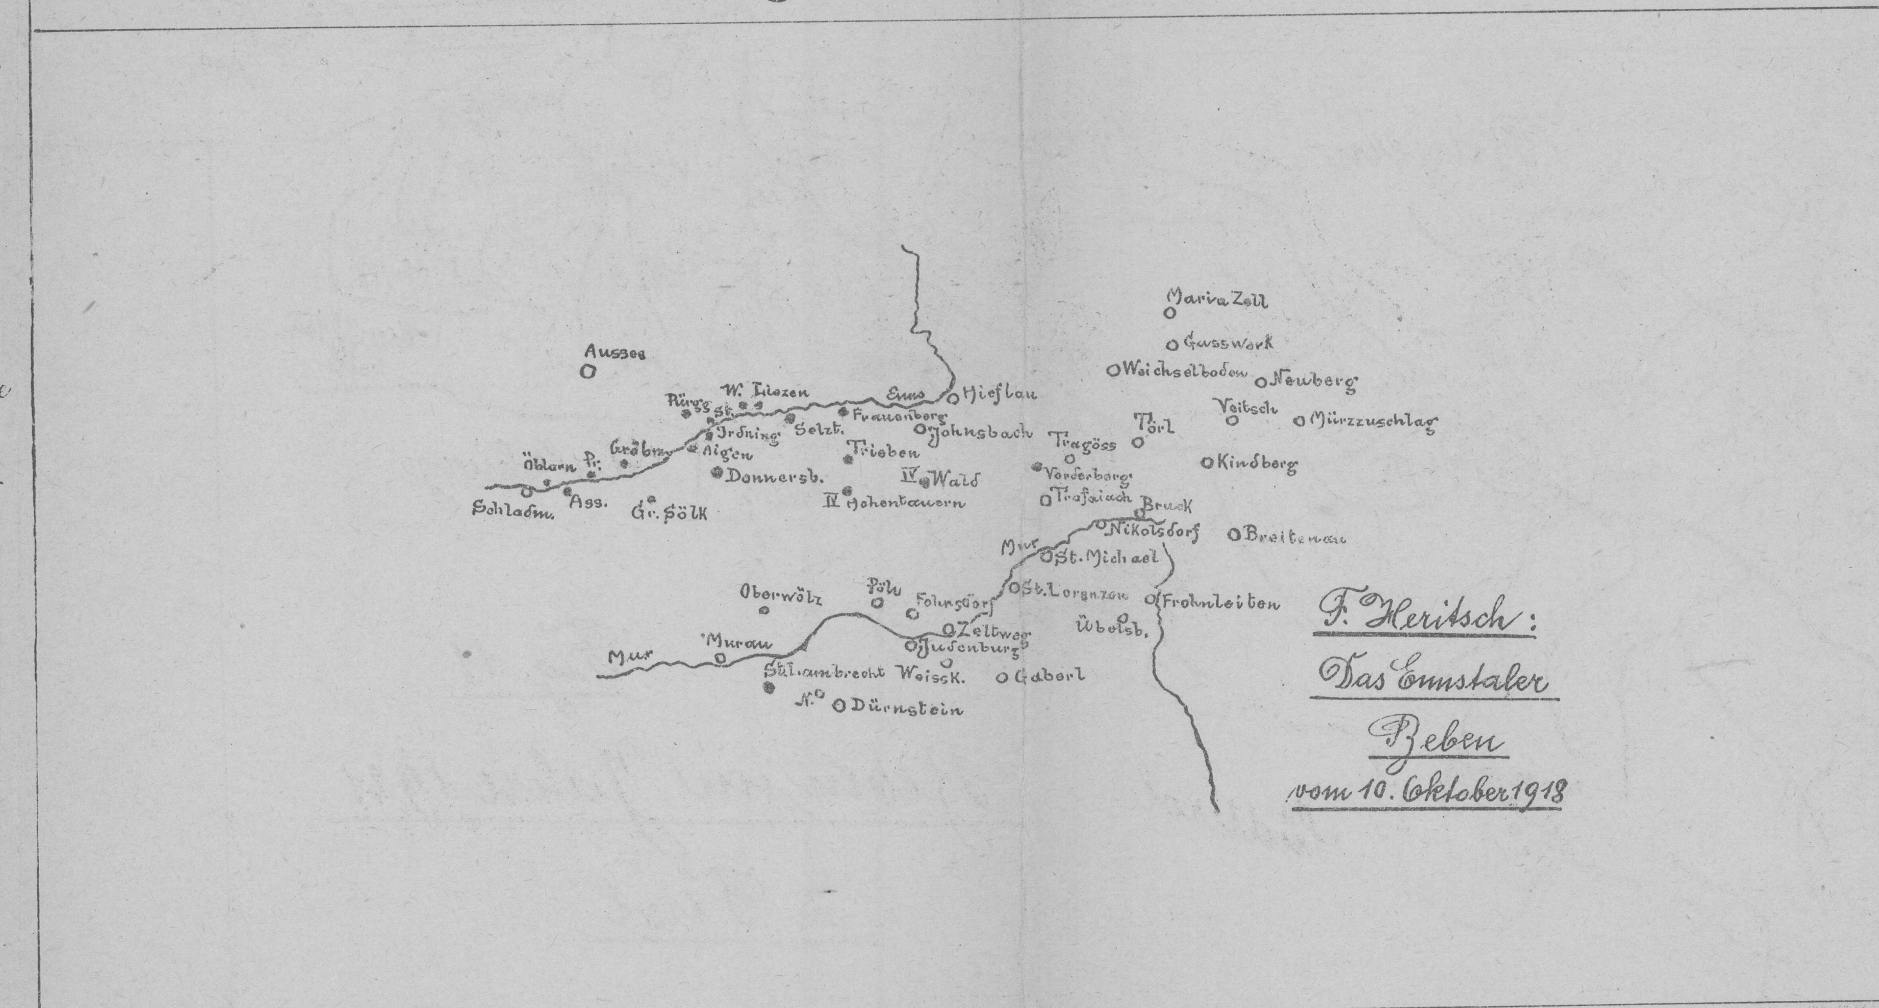 Maria Zell
Gusswerk
Aussee
Weichselboden
Neuberg
W. Liezen
Enns
Hieflau
Pürgg
St.
Frauenberg
Veitsch
Mürzzuschlag
Irdning
Selzt.
Johnsbach
Törl
Tragöss
Gröbm.
Aigen
Trieben
Kindberg
Öblarn
Pr.
Donnersb.
IV Wald
Vorderberg
Schladm.
Ass.
Gr. Sölk
IV Hohentauern
Trofaiach
Bruck
Nikolsdorf
Breitenau
Mur
St. Michael
Oberwölz
Pöls
Fohnsdorf
St. Lorenzen
Frohnleiten
Zeltweg
Übelsb.
Mur
Murau
Judenburg
St. Lambrecht
Weissk.
Gaberl
N.
Dürnstein
F. Heritsch:
Das Ennstaler
Beben
vom 10. Oktober 1918